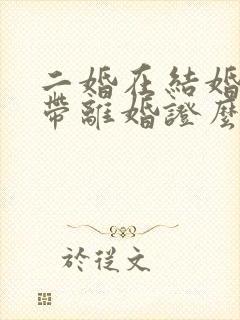 二婚在結婚
帶離婚證麼
於從文